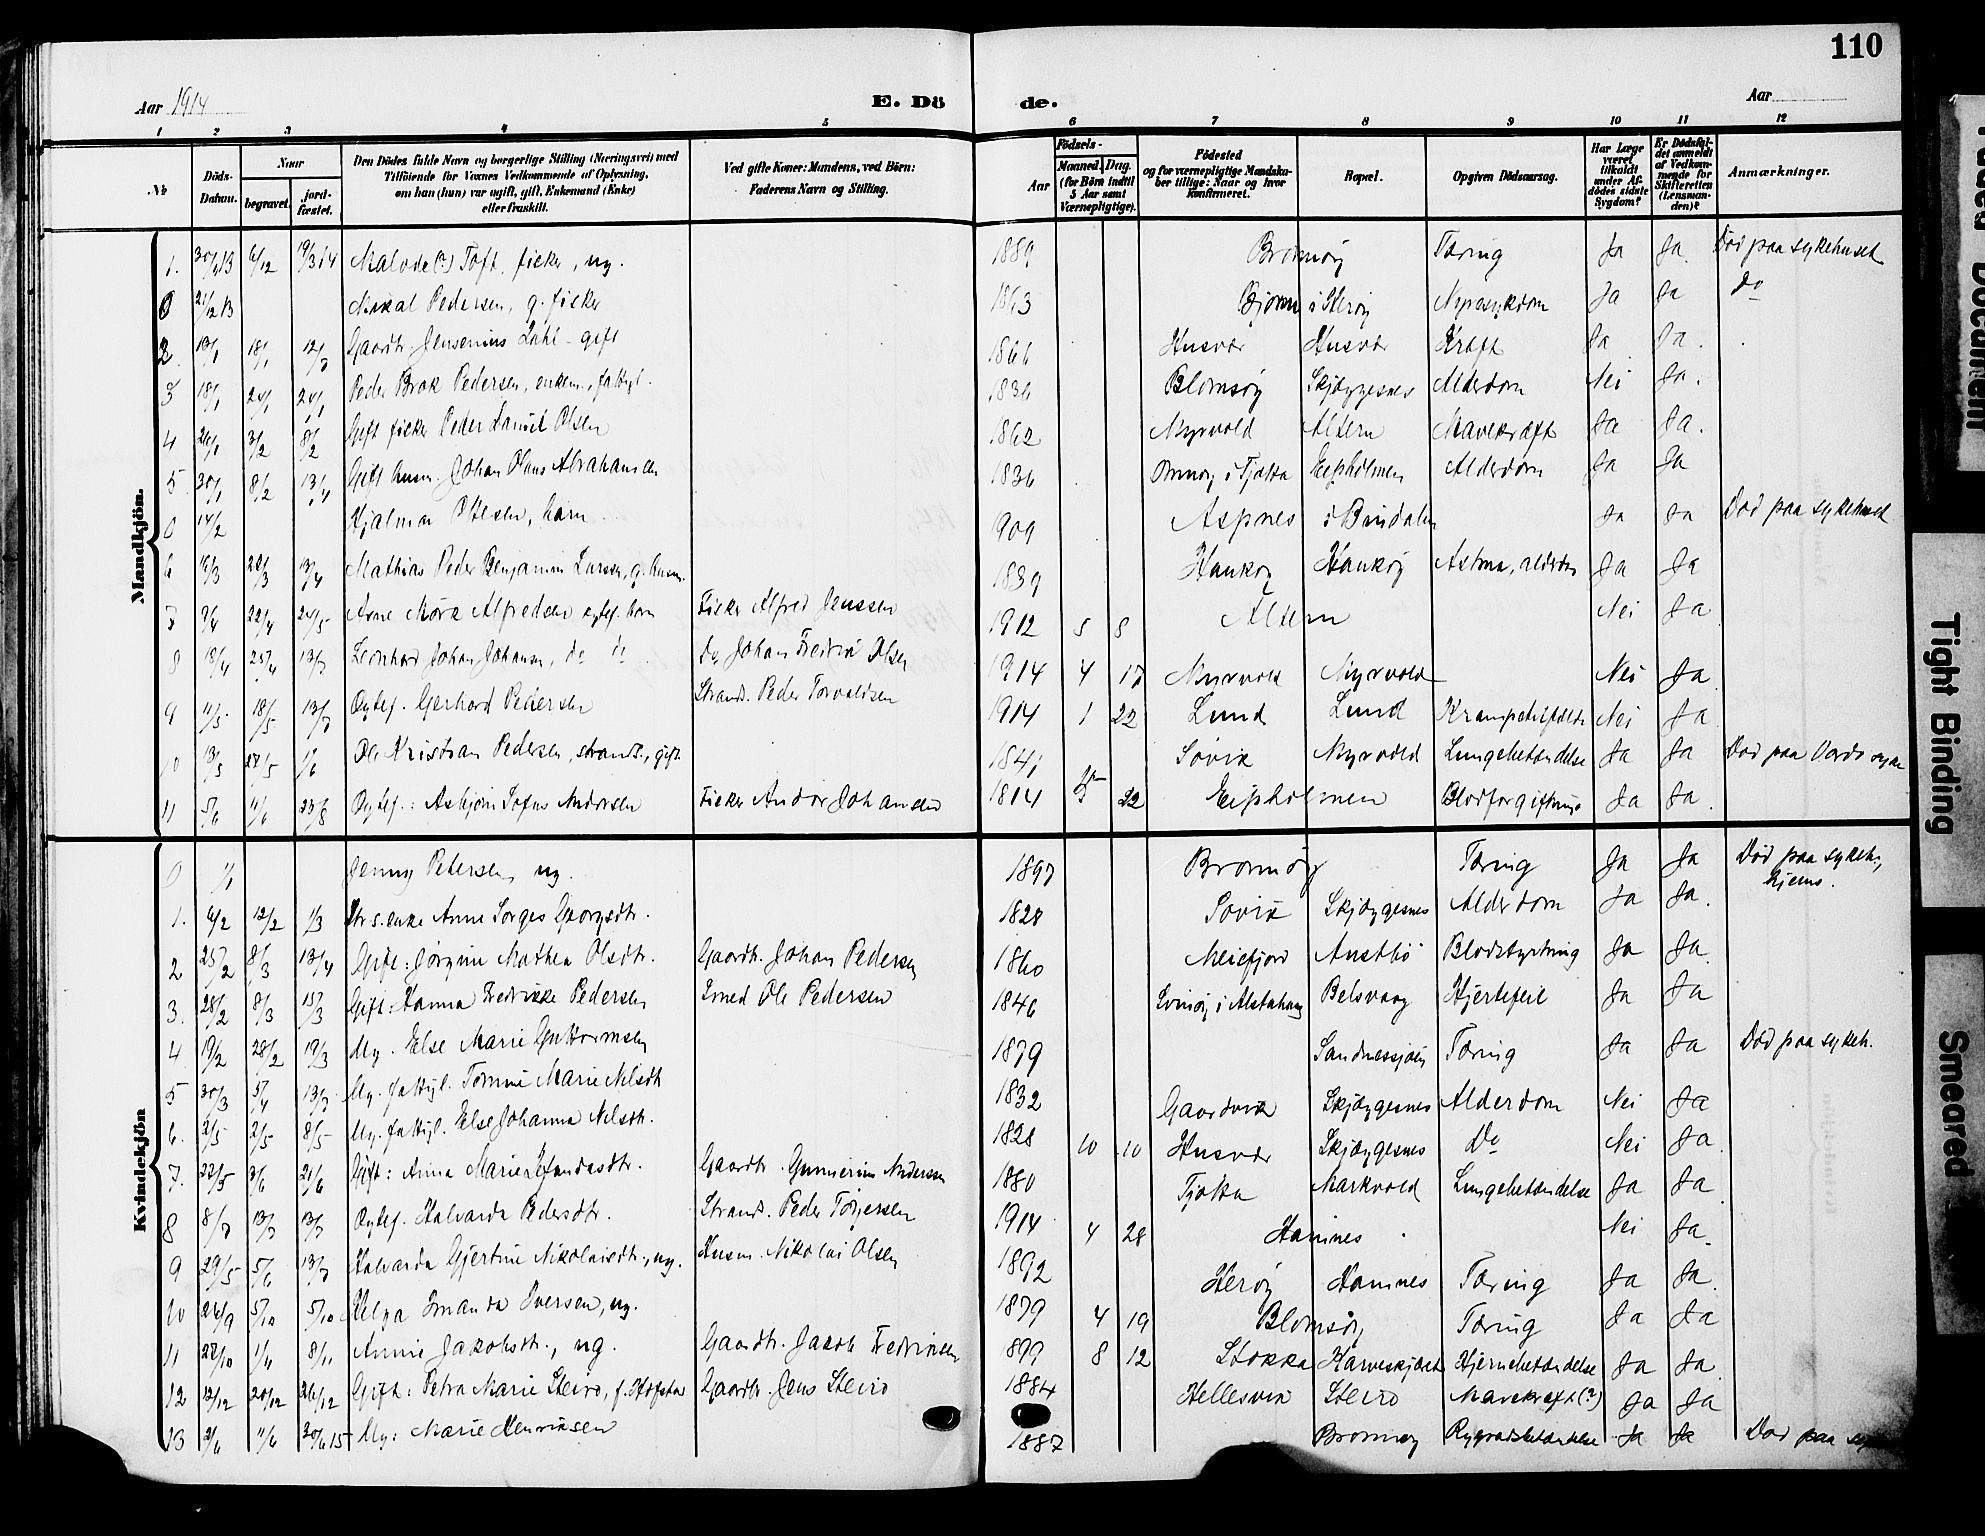 110
Aar 1914 E. Dö de. Aar
1 2 3 4 5 6 7 8 9 10 11 12
No Döds-Datum. Naar begravet. jordfæstet. Den Dödes fulde Navn og borgerlige Stilling (Næringsvei) med Tilföiende for Voxnes Vedkommende af Oplysning, om han (hun) var ugift, gift, Enkemand (Enke) eller fraskilt. Ved gifte Koner: Mandens, ved Börn: Faderens Navn og Stilling. Födsels- Aar Maaned. Dag. (for Börn indtil 5 Aar samt Værnepligtige). Födested og for værnepligtige Mandskaber tillige: Naar og hvor konfirmeret. Bopæl. Opgiven Dödsaarsag. Har Læge været tilkaldt under Afdödes sidste Sygdom? Er Dödsfaldet anmeldt af Vedkommende for Skifteretten (Lensmanden)? Anmærkninger.
Mandkjön.
1. 30/11 13 6/12 19/3 14 Malvde(?) Toft, fisker, ug. 1889 Brønnøy Tæring Ja Ja. Død paa sykehuset
0 21/12 13 Mikal Pedersen, g. fisker 1863 Bjørnn i Herøy Nyresykdom Ja Ja Do
2 13/1 18/1 12/7 Gaardbr. Jensenius Dahl - gift 1866 Husvær Husvær Kræft Ja Ja.
3 18/1 24/1 24/1 Peder Brok Pedersen, enkem., fattigl. 1836 Blomsøy Skjeggesnes Alderdom Nei Ja.
4 26/1 3/2 8/2 Gift fisker Peder Daniel Olsen 1862 Myrvold Altern Mavekræft Ja Ja.
5. 30/1 8/2 13/4 Gift husm. Johan Olaus Abrahamsen 1836 Omnøy i Tjøtta Eipholmen Alderdom Ja Ja
0 14/2 Hjalmar Ottesen, barn. 909 Aspnes i Bindalen Ja Ja Død paa sykehuset
6 16/3 20/3 13/4 Mathias Peder Benjamin Larsen, g. husm. 1839 Haukøy Haukøy Astma, alderdom Ja Ja
7 9/4 22/4 24/5 Arne Mørk Alfredsen egtef. barn Fisker Alfred Jenssen 1912 5 8 Altern Nei Ja
8 18/4 25/4 13/7 Leonhard Johan Johansen, do do Do Johan Fredrik Olsen 1914 4 17 Myrvold Myrvold Nei Ja.
9 11/5 18/5 13/7 Egtef. Gerhard Pedersen Strands. Peder Torvaldsen 1914 1 22 Lund Lund Krampetilfælde Nei Ja.
10 13/5 27/5 1/6 Ole Kristian Pedersen, strands., gift. 1841 Søvik Myrvold Lungebetændelse Ja Ja Død paa
11 5/6 11/6 23/8 Egtef.: Asbjørn Sofus Andorsen Fisker Andor Johansen 1814 5 22 Eipholmen Blodforgiftning Ja Ja.
Kvindekjön
0 1/1 Jenny Petersen, ug. 1897 Brønnøy Tæring Ja Ja Død paa sykeh., hjems.
1. 6/2 12/2 1/3 Strs. enke Anne Sorges Georgsdtr. 1828 Søvik Skjeggesnes Alderdom Ja Ja.
2 25/2 8/3 13/4 Gift: Jørgine Mathea Olsdtr. Gaardbr. Johan Pedersen 1860 Meiefjord Austbø Blodstyrtning Ja Ja.
3. 28/2 8/3 15/3 Gift: Hanna Fredrikke Pedersen Smed Ole Pedersen 1846 Svinøy i Alstahaug Belsvaag Hjertefeil Ja Ja
4 19/2 28/2 19/3 Ug. Else Marie Guttormsen 1879 Sandnessjøen Tæring Ja Ja Død paa sykeh.
5 30/3 5/4 13/7 Ug. fattigl. Tomine Marie Nilsdtr 1832 Gaardsvik Skjeggesnes Alderdom Nei Ja
6. 2/5 2/5 8/5 Ug. fattigl. Else Johanna Nilsdtr. 1828 10 10 Husvær Skjeggesnes Do Nei Ja.
7. 22/5 3/6 21/6 Gift: Anna Marie Stefandsdtr. Gaardbr. Gunnerius Andersen 1880 Tjøtta Markvold Lungebetændelse Ja Ja.
8 8/7 13/7 13/7 Egtef. Halvarda Pedersdtr. Strands. Peder Torjersen 1914 4 28 Hamnes Nei Ja.
9 29/5 5/6 13/7 Halvarda Gjertine Nikolaisdtr., ug. Husm. Nikolai Olsen 1892 Herøy Hamnes Tæring Ja Ja.
10 26/9 5/10 5/10 Helga Amanda Iversen, ug. 1879 4 19 Blomsøy Tæring Ja Ja
11 27/10 1/11 8/11 Annie Jakobsdtr., ug. Gaardbr. Jacob Fredriksen 899 8 12 Stokka Hjernebetændelse Ja Ja.
12 12/12 20/12 26/12 Gift: Petra Marie Steiro, f. Hofstad Gaardbr. Jens Steiro 1884 Hellesvik Steiro Mavekræft(?) Ja Ja
13 2/6 11/6 20/6 15 Ug: Marie Henriksen 1887 Brønnøy Rygradsbetændelse Ja Ja Død paa
Tight Binding
Smeared